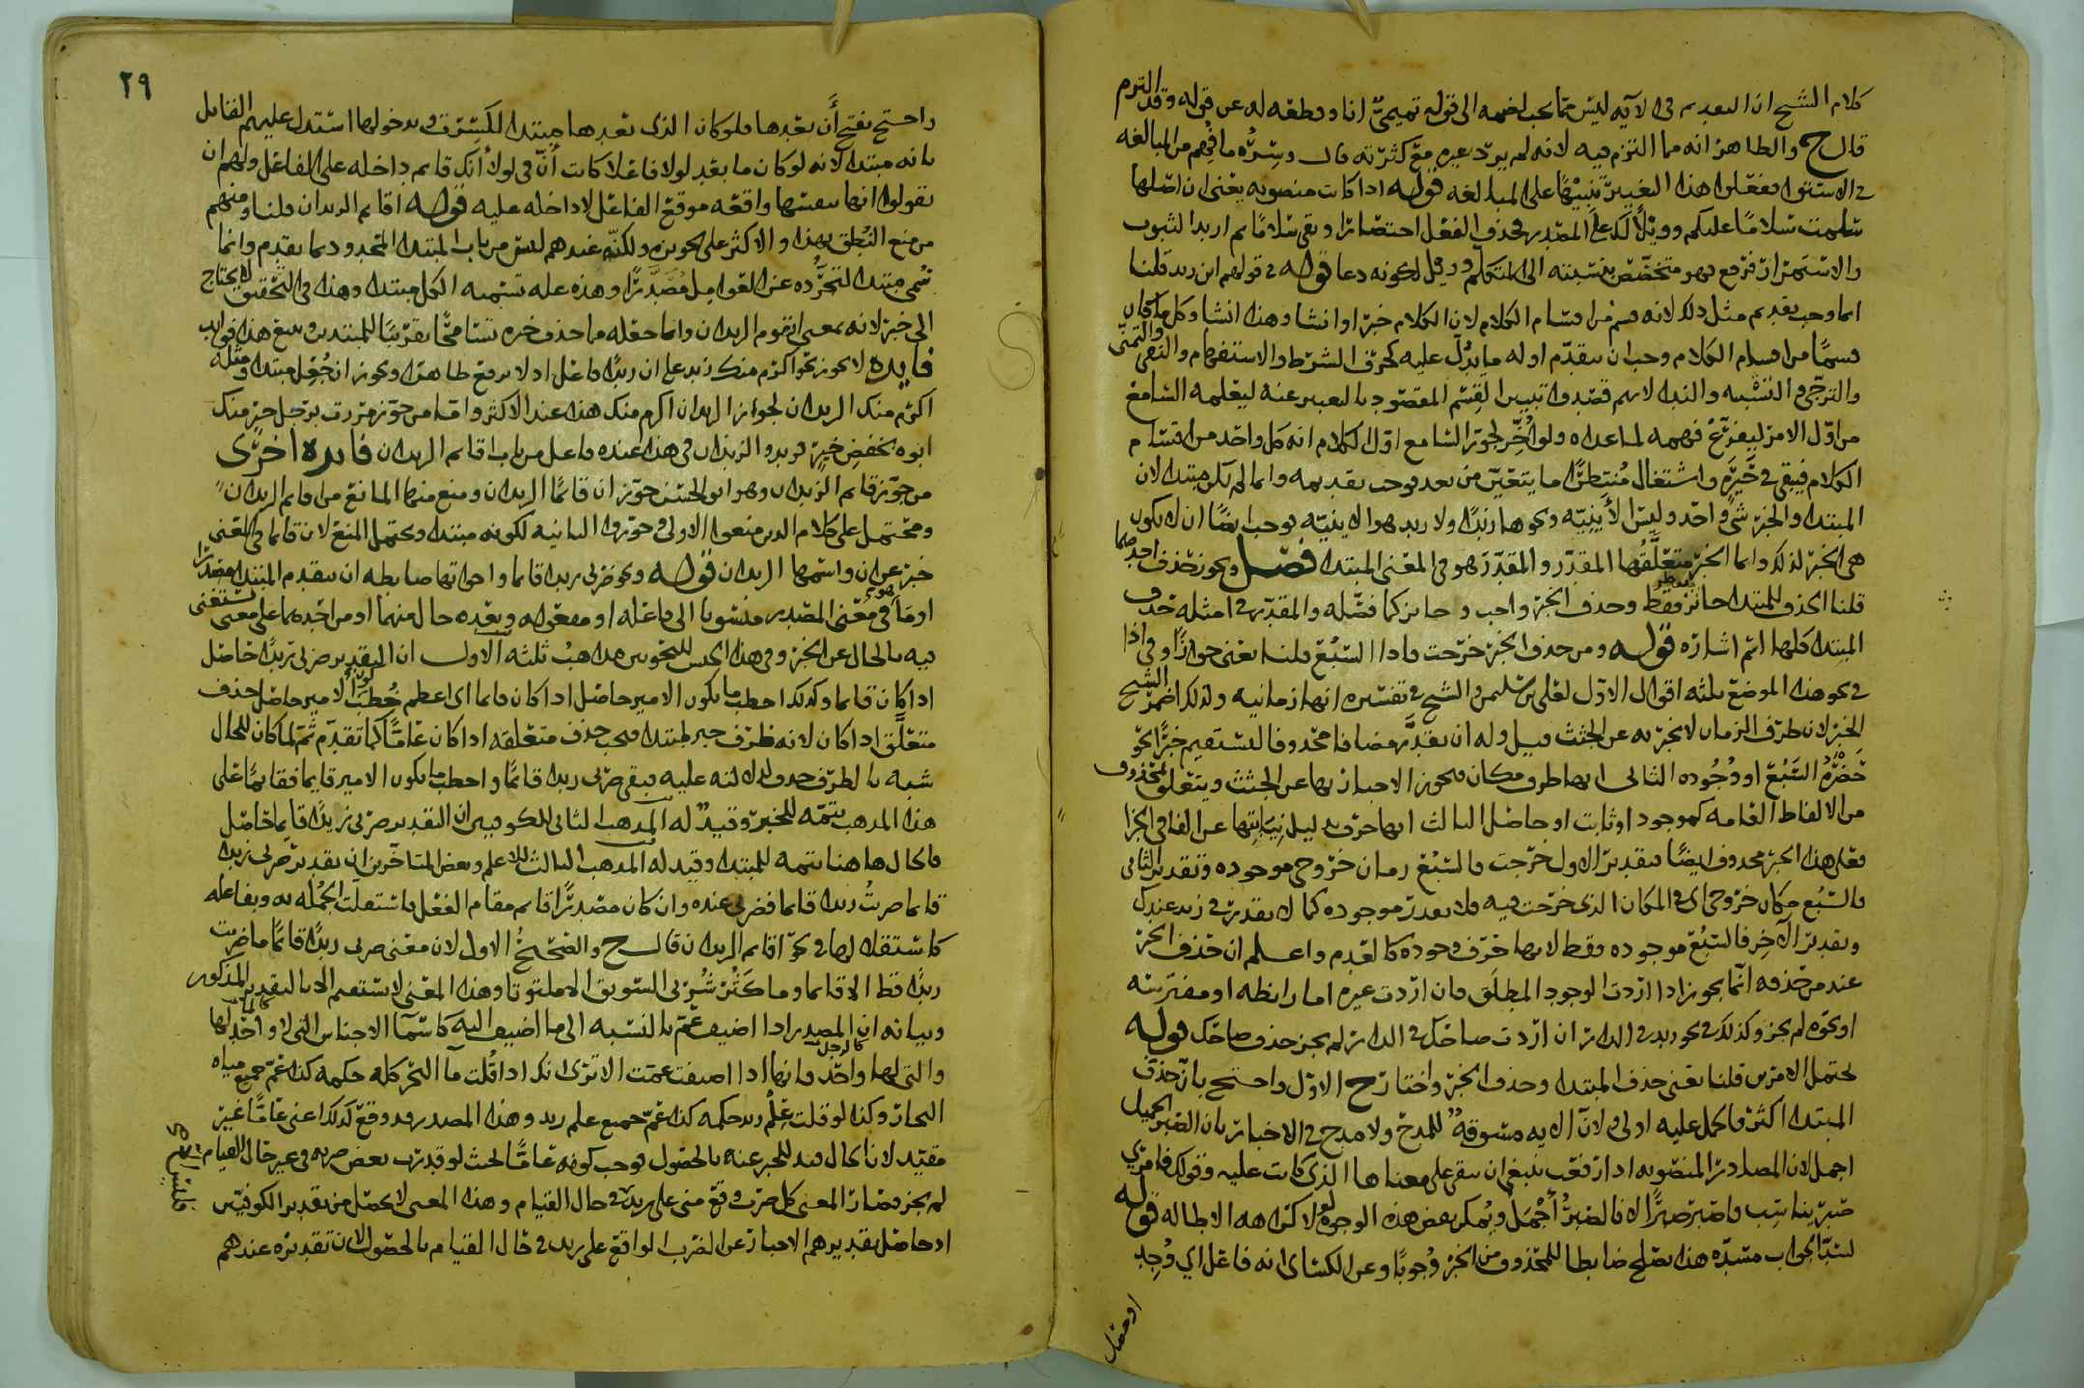 كلام الشيخ ان التقديم في الآيه ليس مما يجب لضمه الى قولهم تميمي انا وقطعه له عن قوله وقد التزم
قال ح والظاهر انه مما التزم فيه لانه لم يرد غيره مع كثرته قال وسره ما فهم من المبالغه
في الاستوا ففعلوا هذا التغيير تنبيها على المبالغه قوله اذا كانت منصوبه يعني ان اصلها
سلمت سلاما عليكم وويلا لك على المصدر فحذف الفعل اختصارا وبقي سلاما ثم اريد الثبوت
والاستمرار فرفع فهو متخصص بنسبته الى المتكلم وقيل لكونه دعا قوله في قولهم اين زيد قلنا
انما وجب تقديم مثل ذلك لانه قسم من اقسام الكلام لان الكلام خبر او انشا وهذا انشا وكل ما كان
قسما من اقسام الكلام وجب ان يتقدم اوله ما يدل عليه كحرف الشرط والاستفهام والنفي والتمني
والترجي والتشبيه والندا لانهم قصدوا تبيين القسم المقصود بالتعبير عنه ليعلمه السامع
من اول الامر ليفرغ فهمه لما عداه ولو اخر لجوز السامع اول الكلام انه كل واحد من اقسام
الكلام فيبقى في حيره واشتغال منتظرا ما يتعين من بعد فوجب تقديمه وانما لم يكن مبتدا لان
المبتدا والخبر شي واحد وليس الأينيه ونحوها زيدا ولا زيد هو الاينيه فوجب ايضا ان لا يكون
هي الخبر لذلك وانما الخبر متعلقها المقدر والمقدر هو في المعنى المبتدا فصل ويجوز حذف احدهما
قلنا الحذف للمبتدا جائز فقط وحذف الخبر واجب وجائز كما فصله والمقدر في امثلة حذف
المبتدا كلها اسم اشاره قوله ومن حذف الخبر خرجت فاذا السبع قلنا يعني جوازا وفي اذا
في نحو هذا الموضع ثلثه اقوال الاول لعلي بن سليمن والشيخ في تفسيره انها زمانيه ولذلك اضمر الشيخ
الخبر لان ظرف الزمان لا يخبر به عن الجثث قيل وله ان يقدر مضافا محذوفا ليستقيم خبرا نحو
حضره السبع او وجوده الثاني انها ظرف مكان فيجوز الاخبار بها عن الجثث ويتعلق بمحذوف
من الالفاظ العامه كموجود او ثابت او حاصل الثالث انها حرف بدليل نيابتها عن الفا في الجزا
فعلى هذا الخبر محذوف ايضا فتقدير الاول خرجت فالسبع زمان خروجي موجوده وتقدير الثاني
فالسبع مكان خروجي اي في المكان الذي خرجت فيه فلا يقدر موجوده كما لا يقدر في زيد عندك
وتقدير الآخر فالسبع موجوده فقط لانها حرف وجوده كالعدم واعلم ان حذف الخبر
عند من حذفه انما يجوز اذا اردت الوجود المطلق فان اردت غيره اما رابطه او مفترسه
او نحوه لم يجز وكذلك في نحو زيد في الدار ان اردت ضاحك في الدار لم يجز حذف ضاحك قوله
يحتمل الامرين قلنا يعني حذف المبتدا وحذف الخبر واختار ح الاول واحتج بان حذف
المبتدا اكثر فالحمل عليه اولى ولان الايه مسوقة للمدح ولا مدح في الاخبار بان الصبر الجميل
اجمل لان المصادر المنصوبه اذا رفعت ينبغي ان تبقى على معناها الذي كانت عليه وقولك فامري
صبر يناسب فاصبر صبرا لا فالصبر أجمل ويمكن نقض هذه الوجوه لولا كراهه الاطاله قوله
لسد الجواب مسده هذا يصلح ضابطا للمحذوف من الخبر وجوبا وعن الكسائي انه فاعل اي وجد
او حصل
٢٩
واحتج بفتح أن بعدها فلو كان الذي بعدها مبتدا لكسرت ودخولها استدل عليهم القائل
بانه مبتدا لانه لو كان ما بعد لولا فاعلا لكانت أن في لولا أنك قايم داخله على الفاعل ولهم ان
يقولوا انها بنفسها واقعه موقع الفاعل لا داخله عليه قوله اقايم الزيدان قلنا ومنهم
من منع النطق بهذا والاكثر على تجويزه ولكنه عندهم ليس من باب المبتدا المحدود بما تقدم وانما
سمي مبتدا لتجرده عن العوامل مصدرا وهذه علة تسميه الكل مبتدا وهذا في التحقيق لا يحتاج
الى خبر لانه بمعنى ايقوم الزيدان وانما جعله مما حذف خبره تسامحا تقريبا للمبتدين ويتبع هذا فوايد
فايده لا يجوز نحو اكرم منك زيد على ان زيدا فاعل اذ لا يرفع ظاهرا ويجوز ان يجعل مبتدا ومثله
اكرم منك الزيدان لجواز الزيدان اكرم منك هذا عند الاكثر واما من جوز مررت برجل خير منك
ابوه بخفض خير فزيد والزيدان في هذا عنده فاعل من باب اقايم الزيدان فايده اخرى
من جوز قايم الزيدان وهو ابو الحسن جوز ان قائما الزيدان ومنع منها المانع من قايم الزيدان
ومحتمل على كلام الذين منعوا الاولى جوزوا الثانيه لكونه مبتدا ويحتمل المنع لان قائما في المعنى
خبر عن ان واسمها الزيدان قوله ونحو ضربي زيدا قايما واخواتها ضابطه ان يتقدم المبتدا مصدرا
او ما هو في معنى المصدر منسوبا الى فاعله او مفعوله وبعده حال منهما او من احدهما على معنى يستغنى
فيه بالحال عن الخبر وفي هذا الجنس للنحويين مذاهب ثلثه الاول ان التقدير ضربي زيدا حاصل
اذا كان قايما وكذلك اخطب ما يكون الامير حاصل اذا كان قايما اي اعظم خطب كون الامير حاصل حذف
متعلق اذا كان لانه ظرف خبر لمبتدا فيجب حذف متعلقه اذا كان عاما كما تقدم ثم لما كان للحال
شبه بالظرف حذف لدلالته عليه فبقي ضربي زيدا قائما واخطب ما يكون الامير قايما فقائما على
هذا المذهب تتمه للخبر وقيد له المذهب الثاني للكوفيين ان التقدير ضربي زيدا قايما حاصل
فالحال هاهنا تتمه للمبتدا وقيد له المذهب الثالث للاعلم وبعض المتاخرين ان تقدير ضربي زيدا
قايما ضربت زيدا قايما فضربي عنده وان كان مصدرا قايم مقام الفعل فاستقلت الجمله به وبفاعله
كاستقلالها في نحو اقايم الزيدان قال ح والصحيح الاول لان معنى ضربي زيدا قائما ما ضربت
زيدا قط الا قايما وما كثر شربي السويق الا ملتوتا وهذا المعنى لا يستقيم الا بالتقدير المذكور
وبيانه ان المصدر اذا اضيف عم بالنسبه الى ما اضيف اليه كاسما الاجناس التي لا واحد لها
والتي لها واحد فانها اذا اضيفت عمت الا ترى انك اذا قلت ما البحر كله حكمه كذا عم جميع مياه
البحار وكذا لو قلت علم زيد حكمه كذا عم جميع علم زيد وهذا المصدر قد وقع كذلك اعني عاما غير
مقيد لان الحال قيد للخبر عنه بالحصول فوجب كونه عاما بحيث لو قدرت بعض ضربه في غير حال القيام
لم يجز فصار المعنى كل ضرب وقع مني على زيد في حال القيام وهذا المعنى لا يحتمل من تقدير الكوفيين
اذ حاصل تقديرهم الاخبار عن الضرب الواقع على زيد في حال القيام بالحصول لان تقديره عندهم